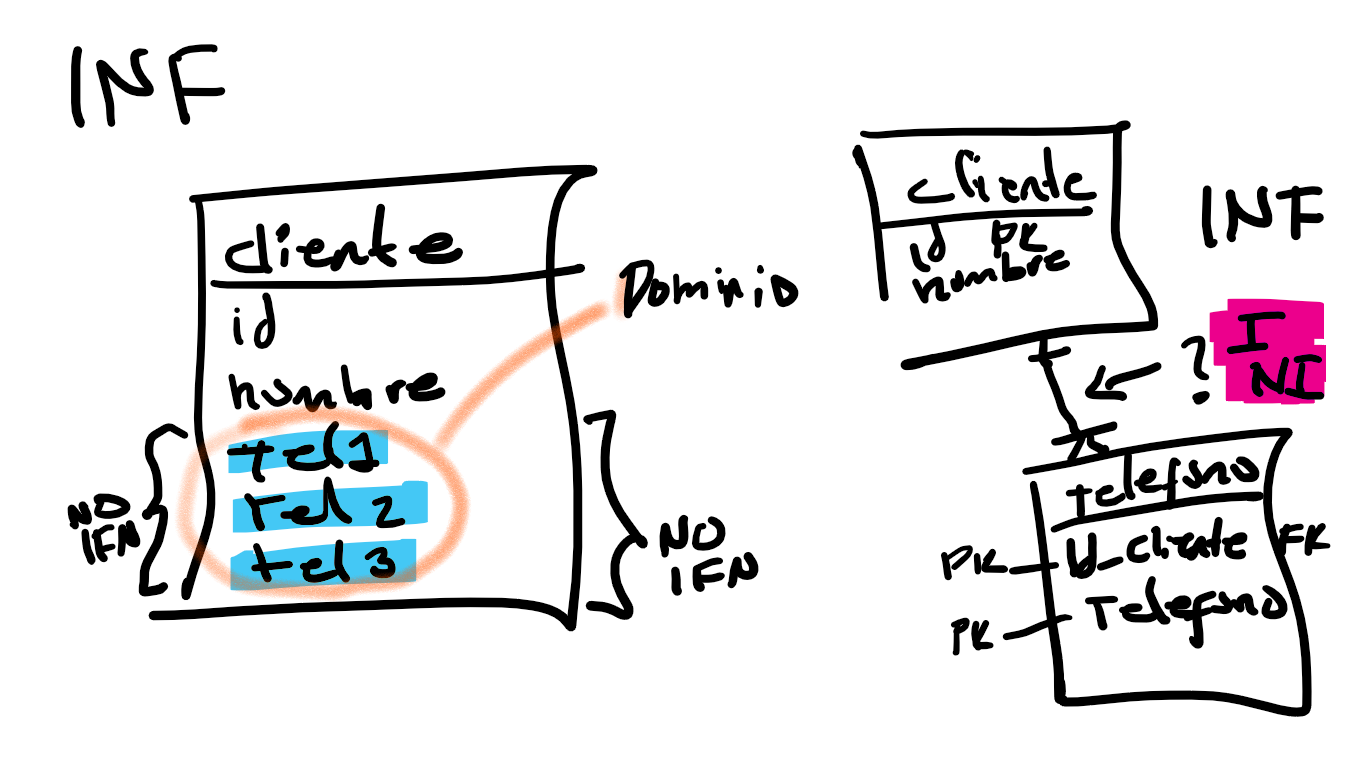 1NF
cliente
id
nombre
tel1
tel2
tel3
NO
1FN
Dominio
NO
1FN
cliente
id PK
nombre
1NF
?
I
NI
telefono
PK id_cliente FK
PK Telefono